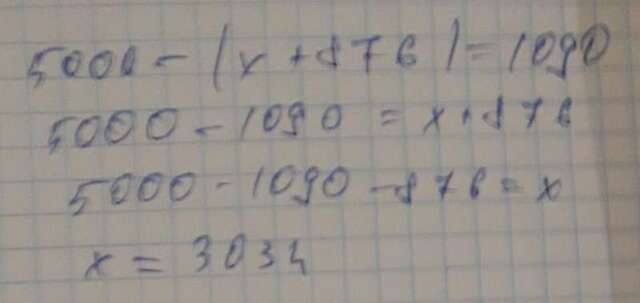 5000 - (x + 876) = 1090
5000 - 1090 = x + 876
5000 - 1090 - 876 = x
x = 3034